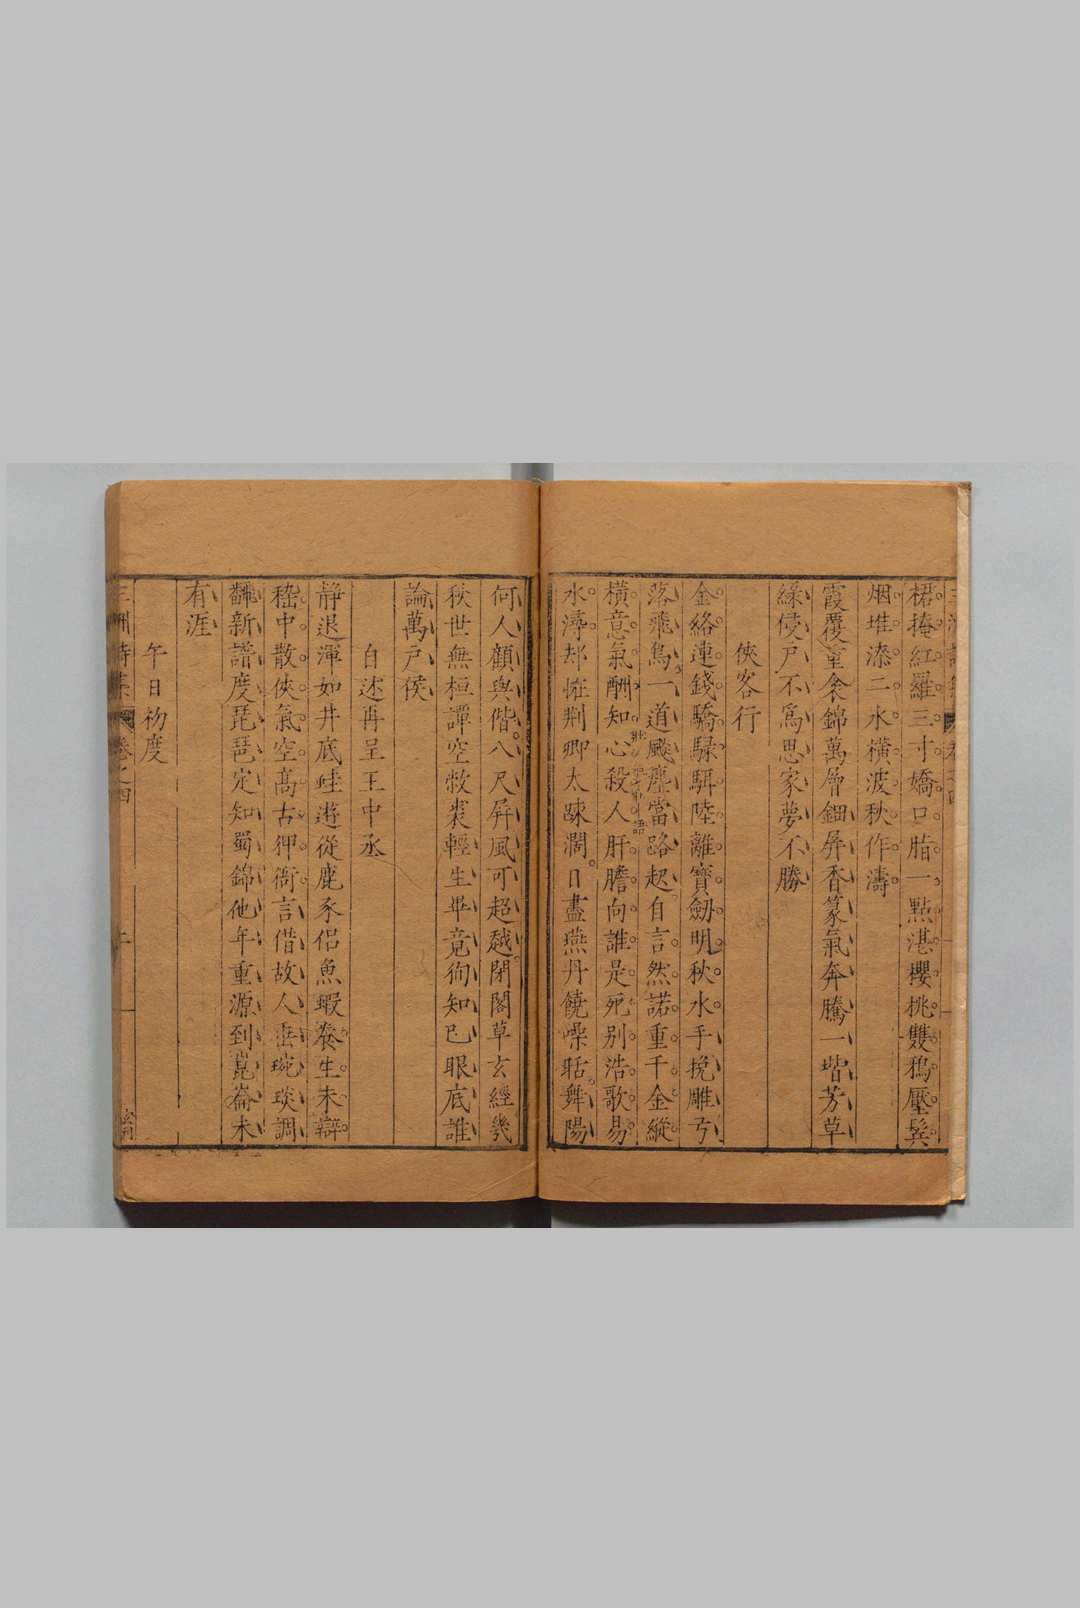 裙掩紅羅三寸嬌口脂一點湛櫻桃雙鴉壓鬂
烟堆漆二水橫波秋作濤
霞覆重衾錦萬層鈿屏香篆氣奔騰一堦芳草
緣侵戶不爲思家夢不勝
俠客行
金絡連錢驕騄駬陸離寶劔明秋水手挽雕弓
落飛鳥一道颷塵當路起自言然諾重千金縱
橫意氣酬知心殺人肝膽向誰是死别浩歌易
水潯却恠荆卿太踈濶日盡燕丹饒噪聒舞陽
何人顧與偕八尺屏風可超越閉閣草玄經幾
秋世無桓譚空敝裘輕生畢竟徇知已眼底誰
論萬戶侯
自述再呈王中丞
静退渾如井底蛙遊從鹿豕侣魚蝦養生未辯
嵇中散俠氣空髙古押衙言借故人歪琬琰調
翻新譜度琵琶定知蜀錦他年重源到崑崙未
有涯
午日初度
三洲詩集 卷之四
二